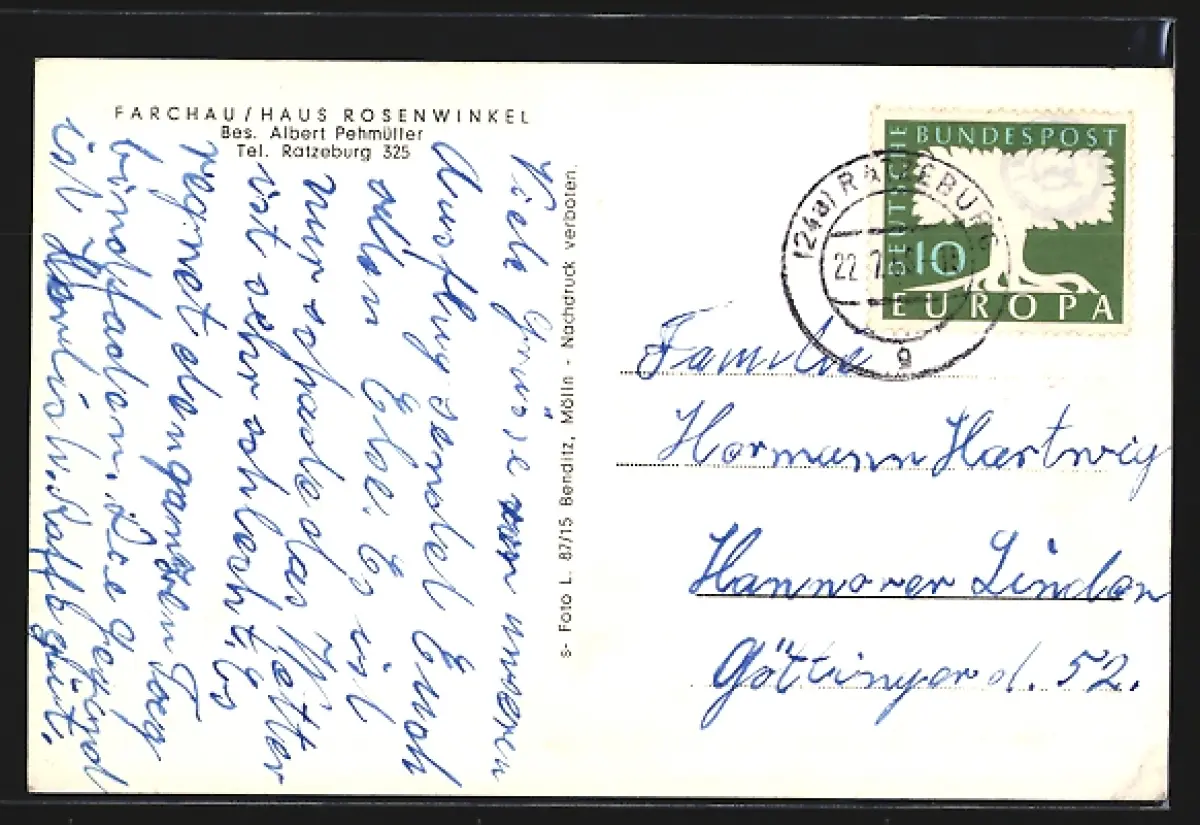 FARCHAU/HAUS ROSENWINKEL
Bes. Albert Pehmüller
Tel. Ratzeburg 325
Viele Grüsse unseren
Ausflug sendet Euch
allen Else. Es ist
nur schade das Wetter
ist sehr schlecht. Es
regnet den ganzen Tag
bindfaden. Die Gegend
ist herrlich. Kaffe gut.
s- Foto L. 87/15 Benditz, Mölln - Nachdruck verboten.
DEUTSCHE BUNDESPOST
10
EUROPA
(24a) RATZEBURG
22.7.
g
Familie
Hermann Hartwig
Hannover Linden
Göttinger 52.